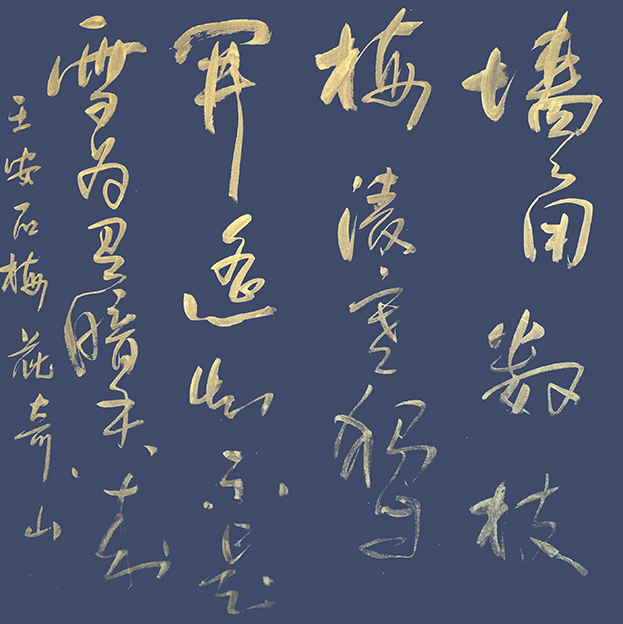 墙角数枝
梅凌寒独自
開遥知不是
雪为有暗香来
王安石梅花奇山